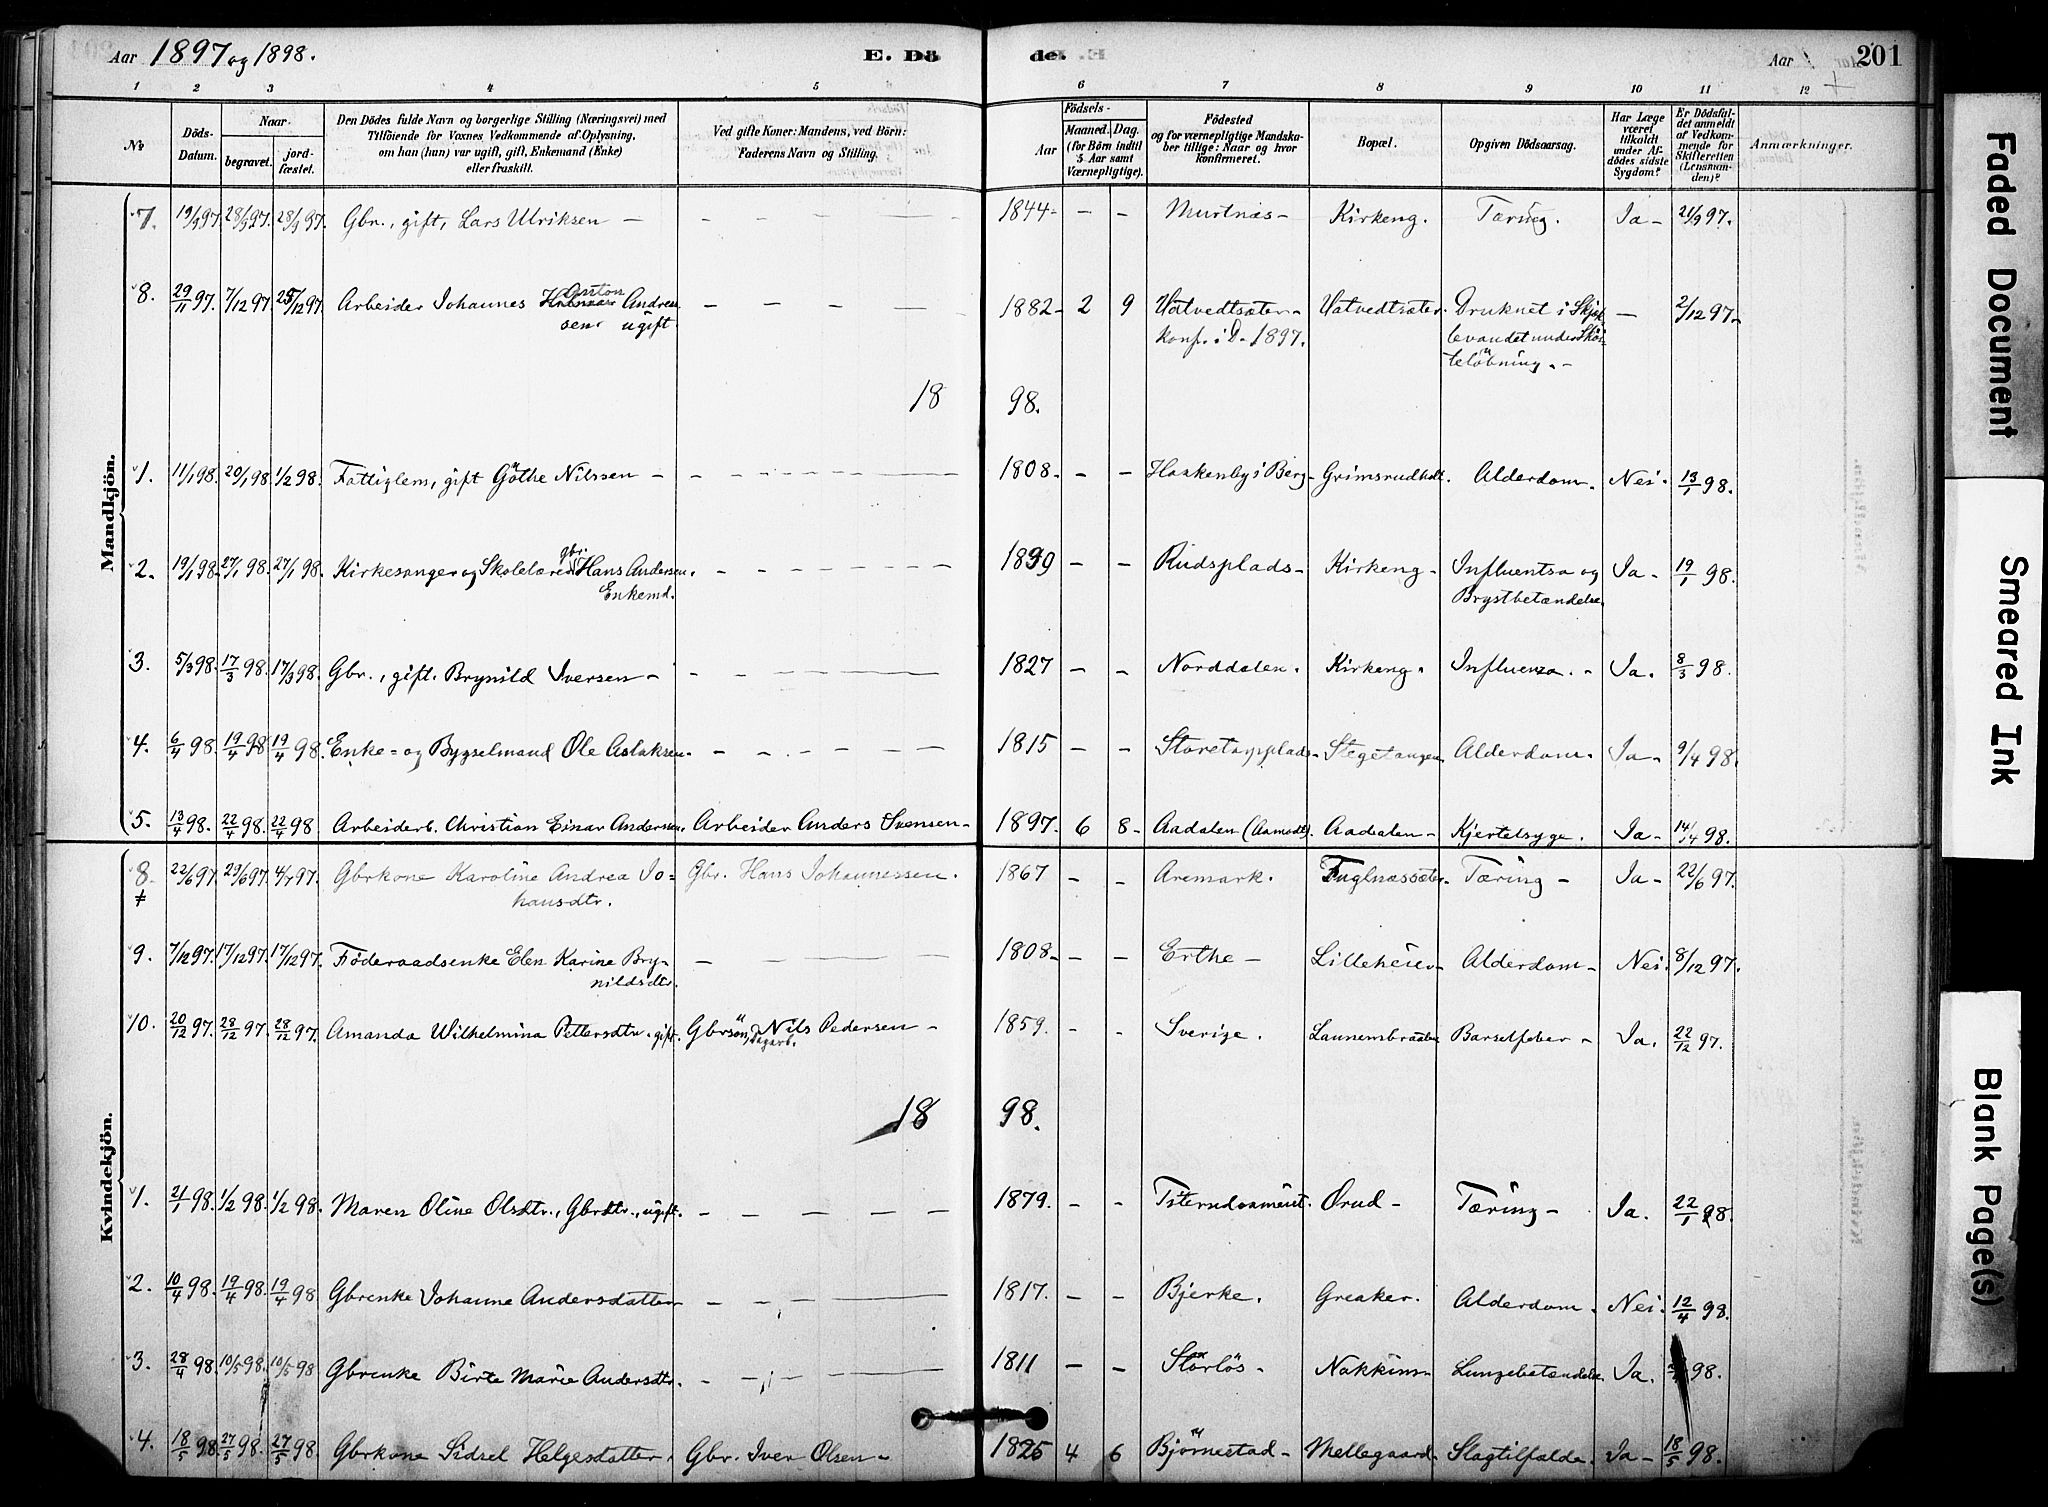 Aar 1897 og 1898. E. Dö de. Aar 201
1 2 3 4 5 6 7 8 9 10 11 12
№ Döds-Datum. Naar begravet. jordfæstet. Den Dödes fulde Navn og borgerlige Stilling (Næringsvei) med Tilföiende for Voxnes Vedkommende af Oplysning, om han (hun) var ugift, gift, Enkemand (Enke) eller fraskilt. Ved gifte Koner: Mandens, ved Börn: Faderens Navn og Stilling. Födsels- Aar Maaned. Dag. (for Börn indtil 5 Aar samt Værnepligtige). Födested og for værnepligtige Mandskaber tillige: Naar og hvor konfirmeret. Bopæl. Opgiven Dödsaarsag. Har Læge været tilkaldt under Afdödes sidste Sygdom? Er Dödsfaldet anmeldt af Vedkommende for Skifteretten (Lensmanden)? Anmærkninger.
Mandkjön.
7. 19/9 97. 28/9 97. 28/9 97. Gbr., gift, Lars Ulriksen — 1844 - - - Murtnæs - Kirkeng. Tæring. Ja - 21/9 97.
8. 29/11 97. 7/12 97. 25/12 97. Arbeider Johannes Anton Andresen ugift. 1882 - 2 9 Vatvedtsæter - Vatvedtsæter. Druknet i Skjæk- — 2/12 97.
konf. i Ø. 1897. levandet under Skøi-
teløbning. -
18 98.
1. 11/1 98. 20/1 98. 1/2 98. Fattiglem, gift Göthe Nilssen - 1808 - - - Haakenby i Berg - Grimsrudholt. Alderdom. Nei. 13/1 98.
2. 19/1 98. 27/1 98. 27/1 98. Kirkesanger og Skolelærer gbr. Hans Andersen. 1839 - - Rudsplads - Kirkeng - Influentsa og Ja - 19/1 98.
Enkemd. Brystbetændelse.
3. 5/3 98. 17/3 98. 17/3 98. Gbr., gift. Brynild Iversen - 1827 - - Norddalen. Kirkeng. Influenza. - Ja. 8/3 98.
4. 6/4 98. 19/4 98. 19/4 98. Enke- og Bygselmand Ole Aslaksen. 1815 - - Storetorpplads - Stegetangen. Alderdom. Ja - 9/4 98.
5. 13/4 98. 22/4 98. 22/4 98 Arbeiderb. Christian Einar Andersen. Arbeider Anders Svensen - 1897 6 8 - Aadalen (Aamodt). Aadalen - Kjertelsyge. Ja - 14/4 98.
Kvindekjön.
8. 22/6 97. 29/6 97. 4/7 97. Gbrkone Karoline Andrea Jo- Gbr. Hans Johannessen. 1867 - - Aremark. Fuglnæssæter. Tæring - Ja - 22/6 97.
hansdtr.
9. 7/12 97. 17/12 97. 17/12 97. Föderaadsenke Elen Karine Bry- 1808 - - - Erthe - Lilleheier - Alderdom - Nei. 8/12 97.
nildsdtr.
10. 20/12 97. 28/12 97. 28/12 97. Amanda Wilhelmina Pettersdtr. gift. Gbrsön, Dagarb. Nils Pedersen - 1859. - - Sverige. Launensbraaten Barselfeber - Ja. 22/12 97.
18 98.
1. 21/1 98. 1/2 98. 1/2 98. Maren Oline Olsdtr., Gbrdtr., ugift. 1879. - - Ørud - Tæring - Ja. 22/1 98.
2. 10/4 98. 19/4 98. 19/4 98 Gbrenke Johanne Andersdatter 1817. - - Bjerke. Greaker. Alderdom. Nei. 12/4 98.
3. 28/4 98. 10/5 98. 10/5 98 Gbrenke Birte Marie Andersdtr. 1811 - - Storlös - Nakkim - Lungebetændelse. Ja. 98.
4. 18/5 98. 27/5 98. 27/5 98. Gbrkone Sidsel Helgesdatter. Gbr. Iver Olsen - 1825 4 6 Bjørnestad - Mellegaard - Slagtilfælde. Ja - 18/5 98.
Faded Document
Smeared Ink
Blank Page(s)